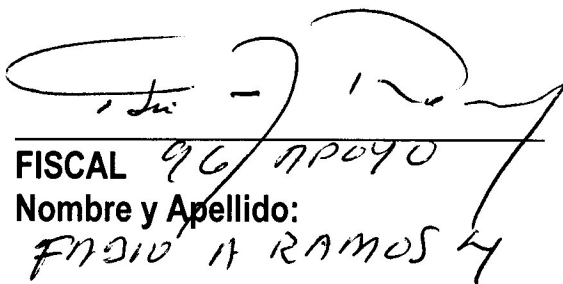 FISCAL 96 APOYO
Nombre y Apellido:
FABIO A RAMOS